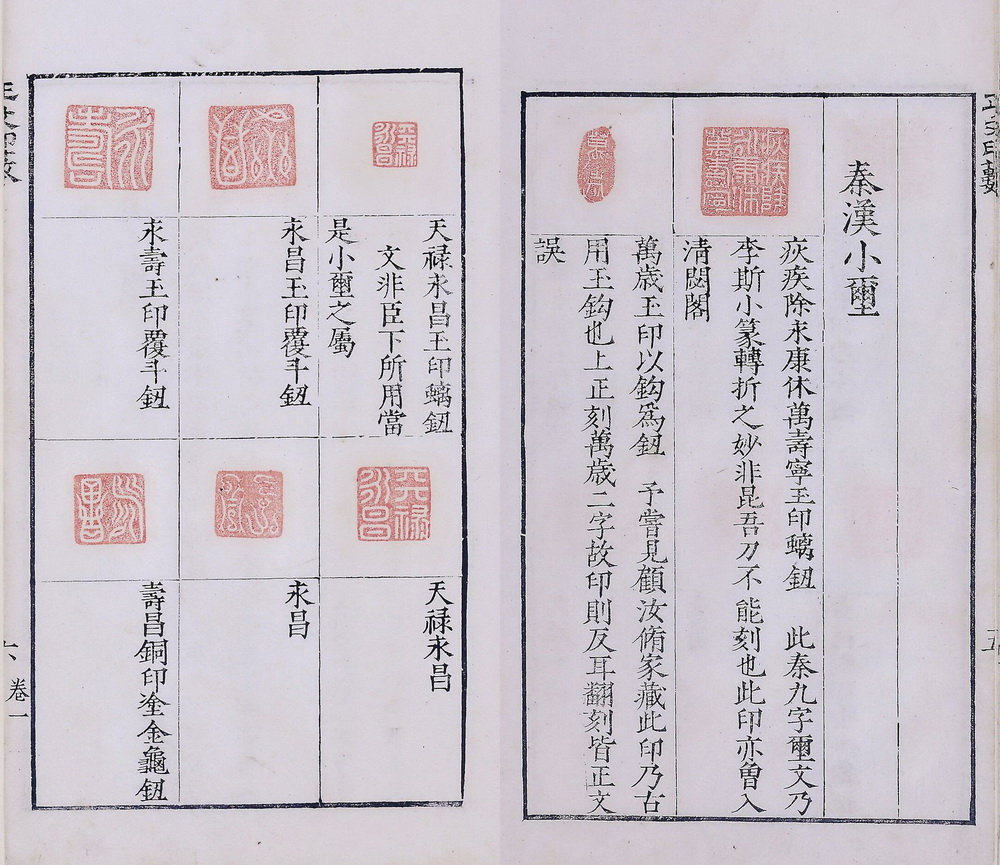 秦漢小璽
疢疾除永康休萬壽寧玉印螭鈕　此秦九字璽文乃
李斯小篆轉折之妙非昆吾刀不能刻也此印亦曾入
清閟閣
萬歲玉印以鈎爲鈕　予嘗見顧汝脩家藏此印乃古
用玉鈎也上正刻萬歲二字故印則反耳翻刻皆正文
誤
天禄永昌玉印螭鈕
文非臣下所用當
是小璽之屬
永昌玉印覆斗鈕
永壽玉印覆斗鈕
天禄永昌
永昌
壽昌銅印塗金龜鈕
卷一
六
五